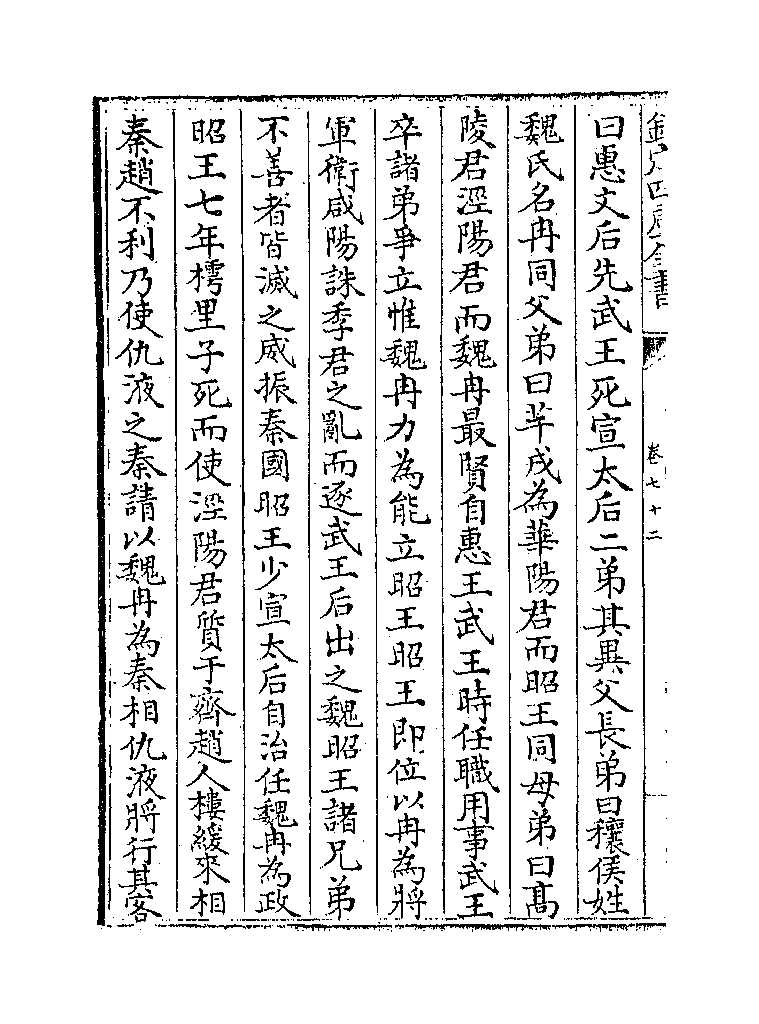 欽定四庫全書
卷七十二
曰惠文后先武王死宣太后二弟其異父長弟曰穰侯姓
魏氏名冉同父弟曰芊戎為華陽君而昭王同母弟曰髙
陵君涇陽君而魏冉最賢自惠王武王時任職用事武王
卒諸弟爭立惟魏冉力為能立昭王昭王即位以冉為將
軍衛咸陽誅季君之亂而逐武王后出之魏昭王諸兄弟
不善者皆滅之威振秦國昭王少宣太后自治任魏冉為政
昭王七年樗里子死而使涇陽君質于齊趙人樓緩來相
秦趙不利乃使仇液之秦請以魏冉為秦相仇液將行其客